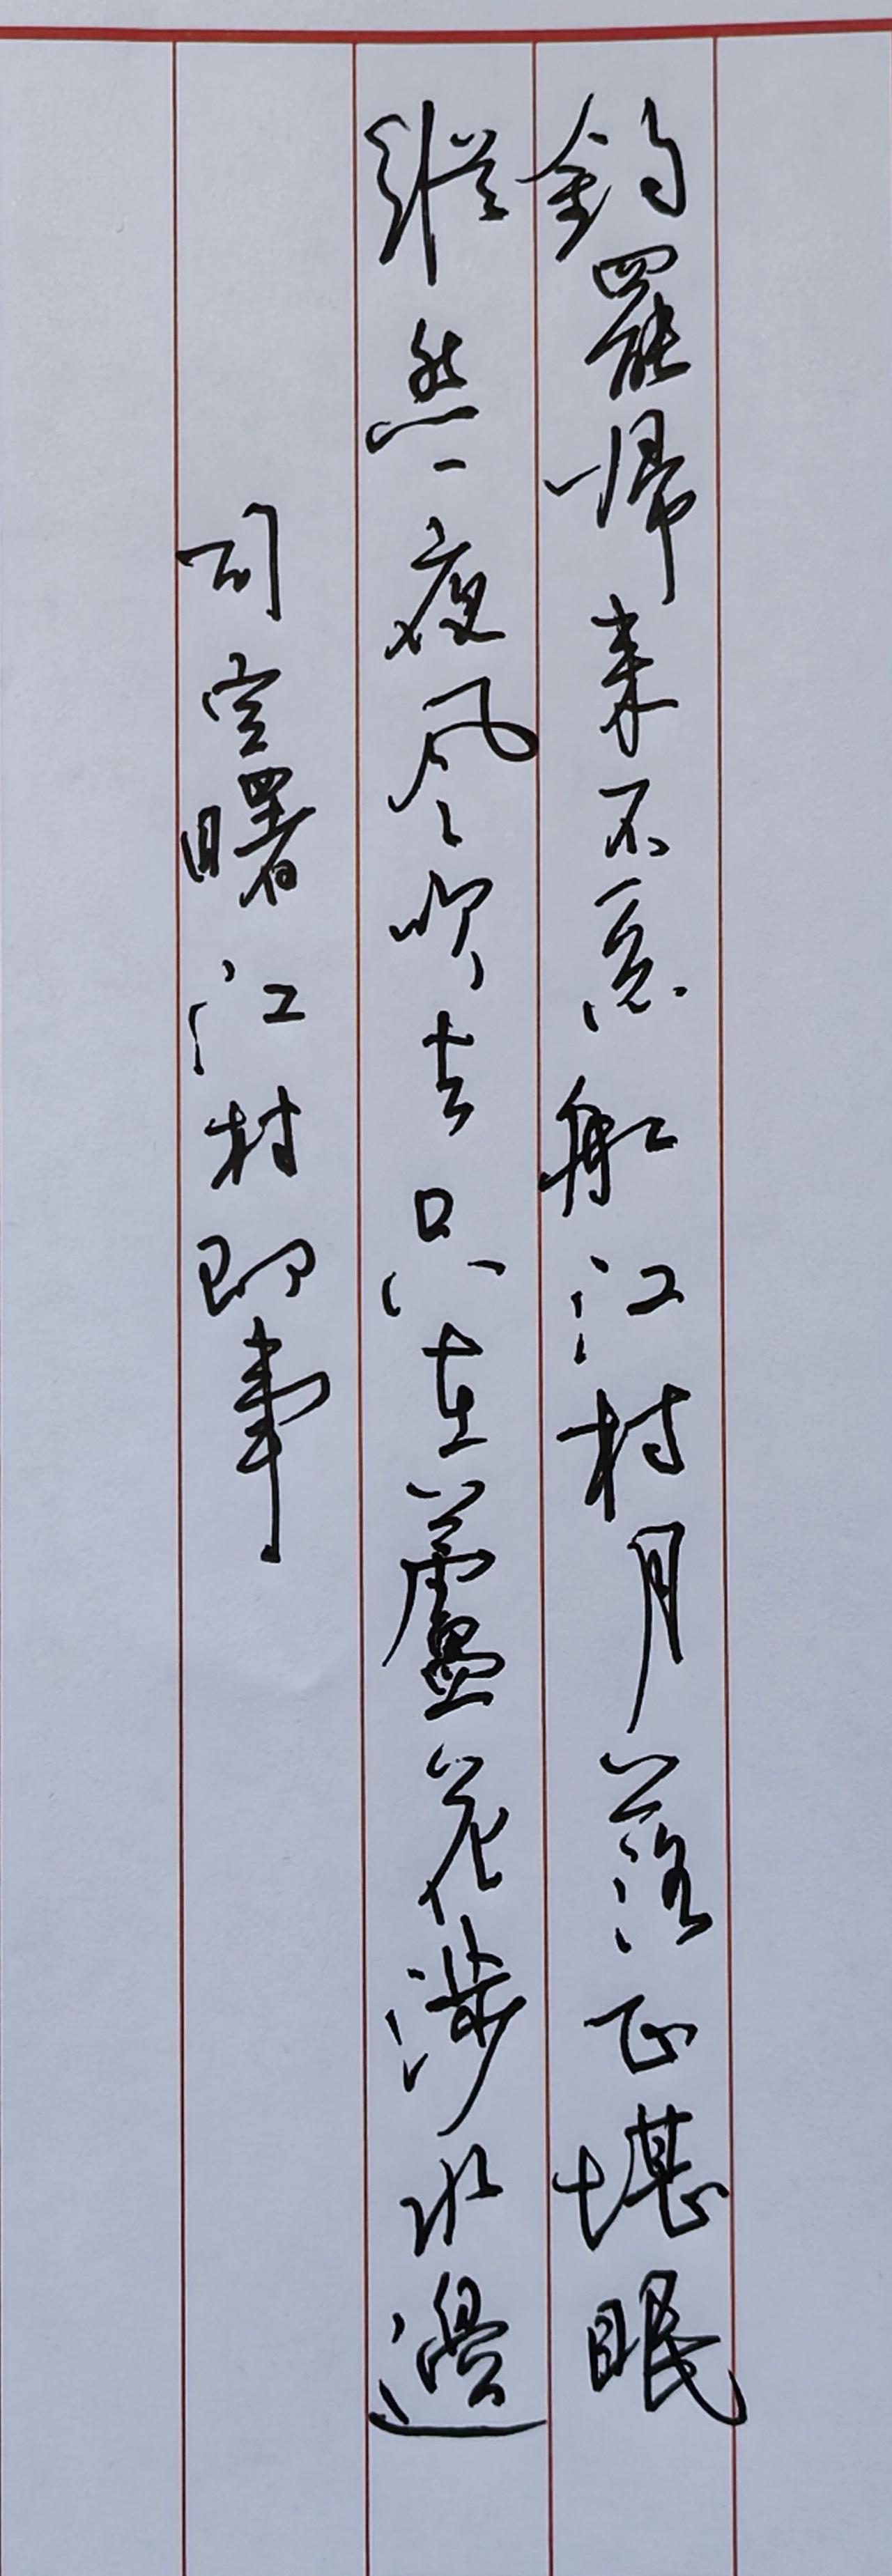 釣罷歸來不系船江村月落正堪眠
縱然一夜風吹去只在蘆花涉水邊
司空曙江村即事